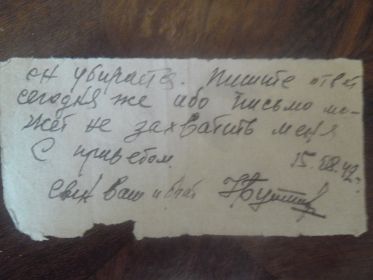 он убирается. Пишите ответ
сегодня же ибо письмо мо-
жет не захватить меня
С приветом. 15.08.42г.
сын ваш и брат